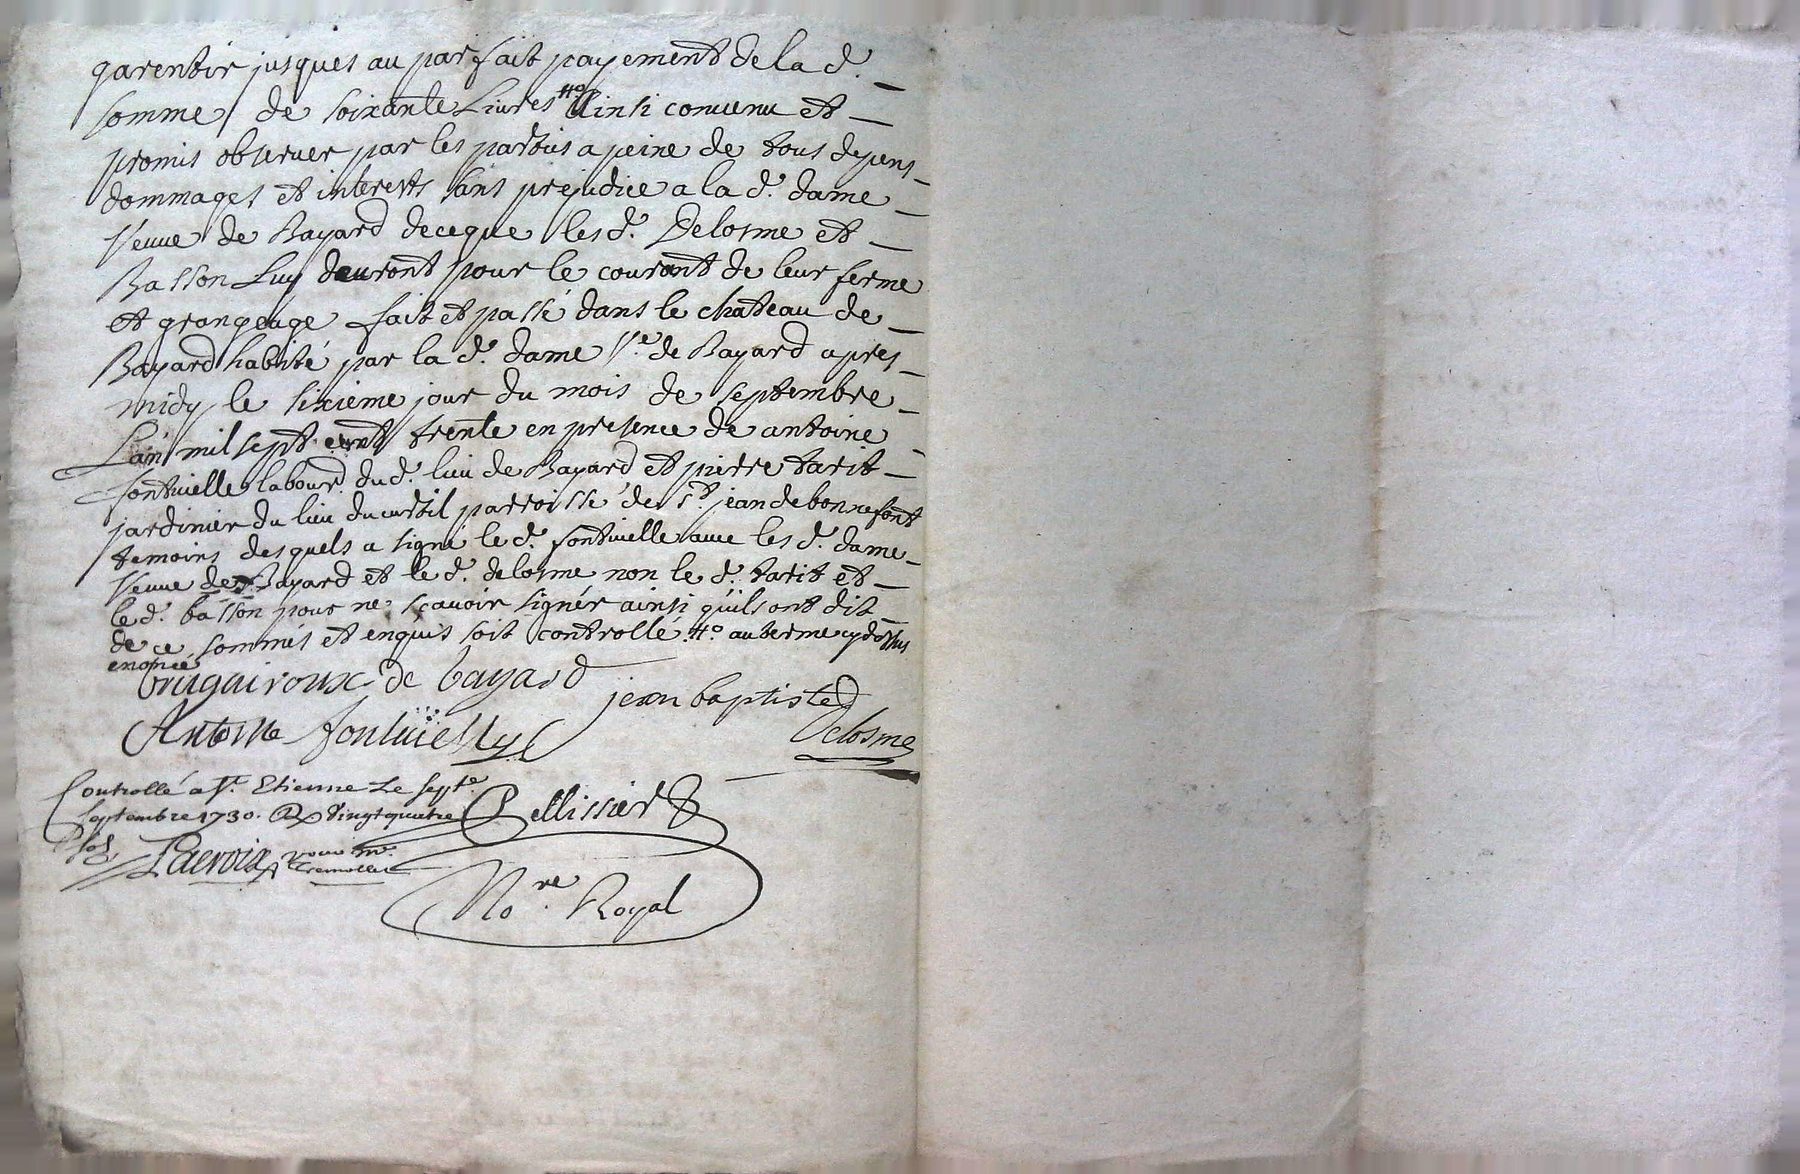 garentir jusques au parfait payement de la d.
somme de soixante Livres #o Ainsi convenu et
promis observer par les parties a peine de tous depens
dommages et interests sans prejudice a la d. dame
veuve de Bayard de ce que les d. Delosme et
Basson Luy devront pour le courant de leur ferme
et grangeage fait et passé dans le chateau de
Bayard habité par la d. dame V.e de Bayard apres
midy le sixieme jour du mois de septembre
L'an mil sept cent trente en presence de antoine
fontvielle labour. du d. lieu de Bayard et pierre tarit
jardinier du lieu du curtil parroisse de s.t jean de bonnefont
temoins desquels a signé le d. fontvielle avec les d. dame
veuve de Bayard et le d. delosme non le d. tarit et
le d. basson pour ne scavoir signér ainsi qu'ils ont dit
de ce sommés et enquis soit controllé #o au terme cy dessus
enoncé
Brugairoux de bayard
jean baptiste
Delosme
Antoine fontvielle
Controllé a S.t Etienne Le sept.e
septembre 1730. R vingt quatre
sols Lacroix pour m.r
Tremollet
Pellissier
No.re Royal